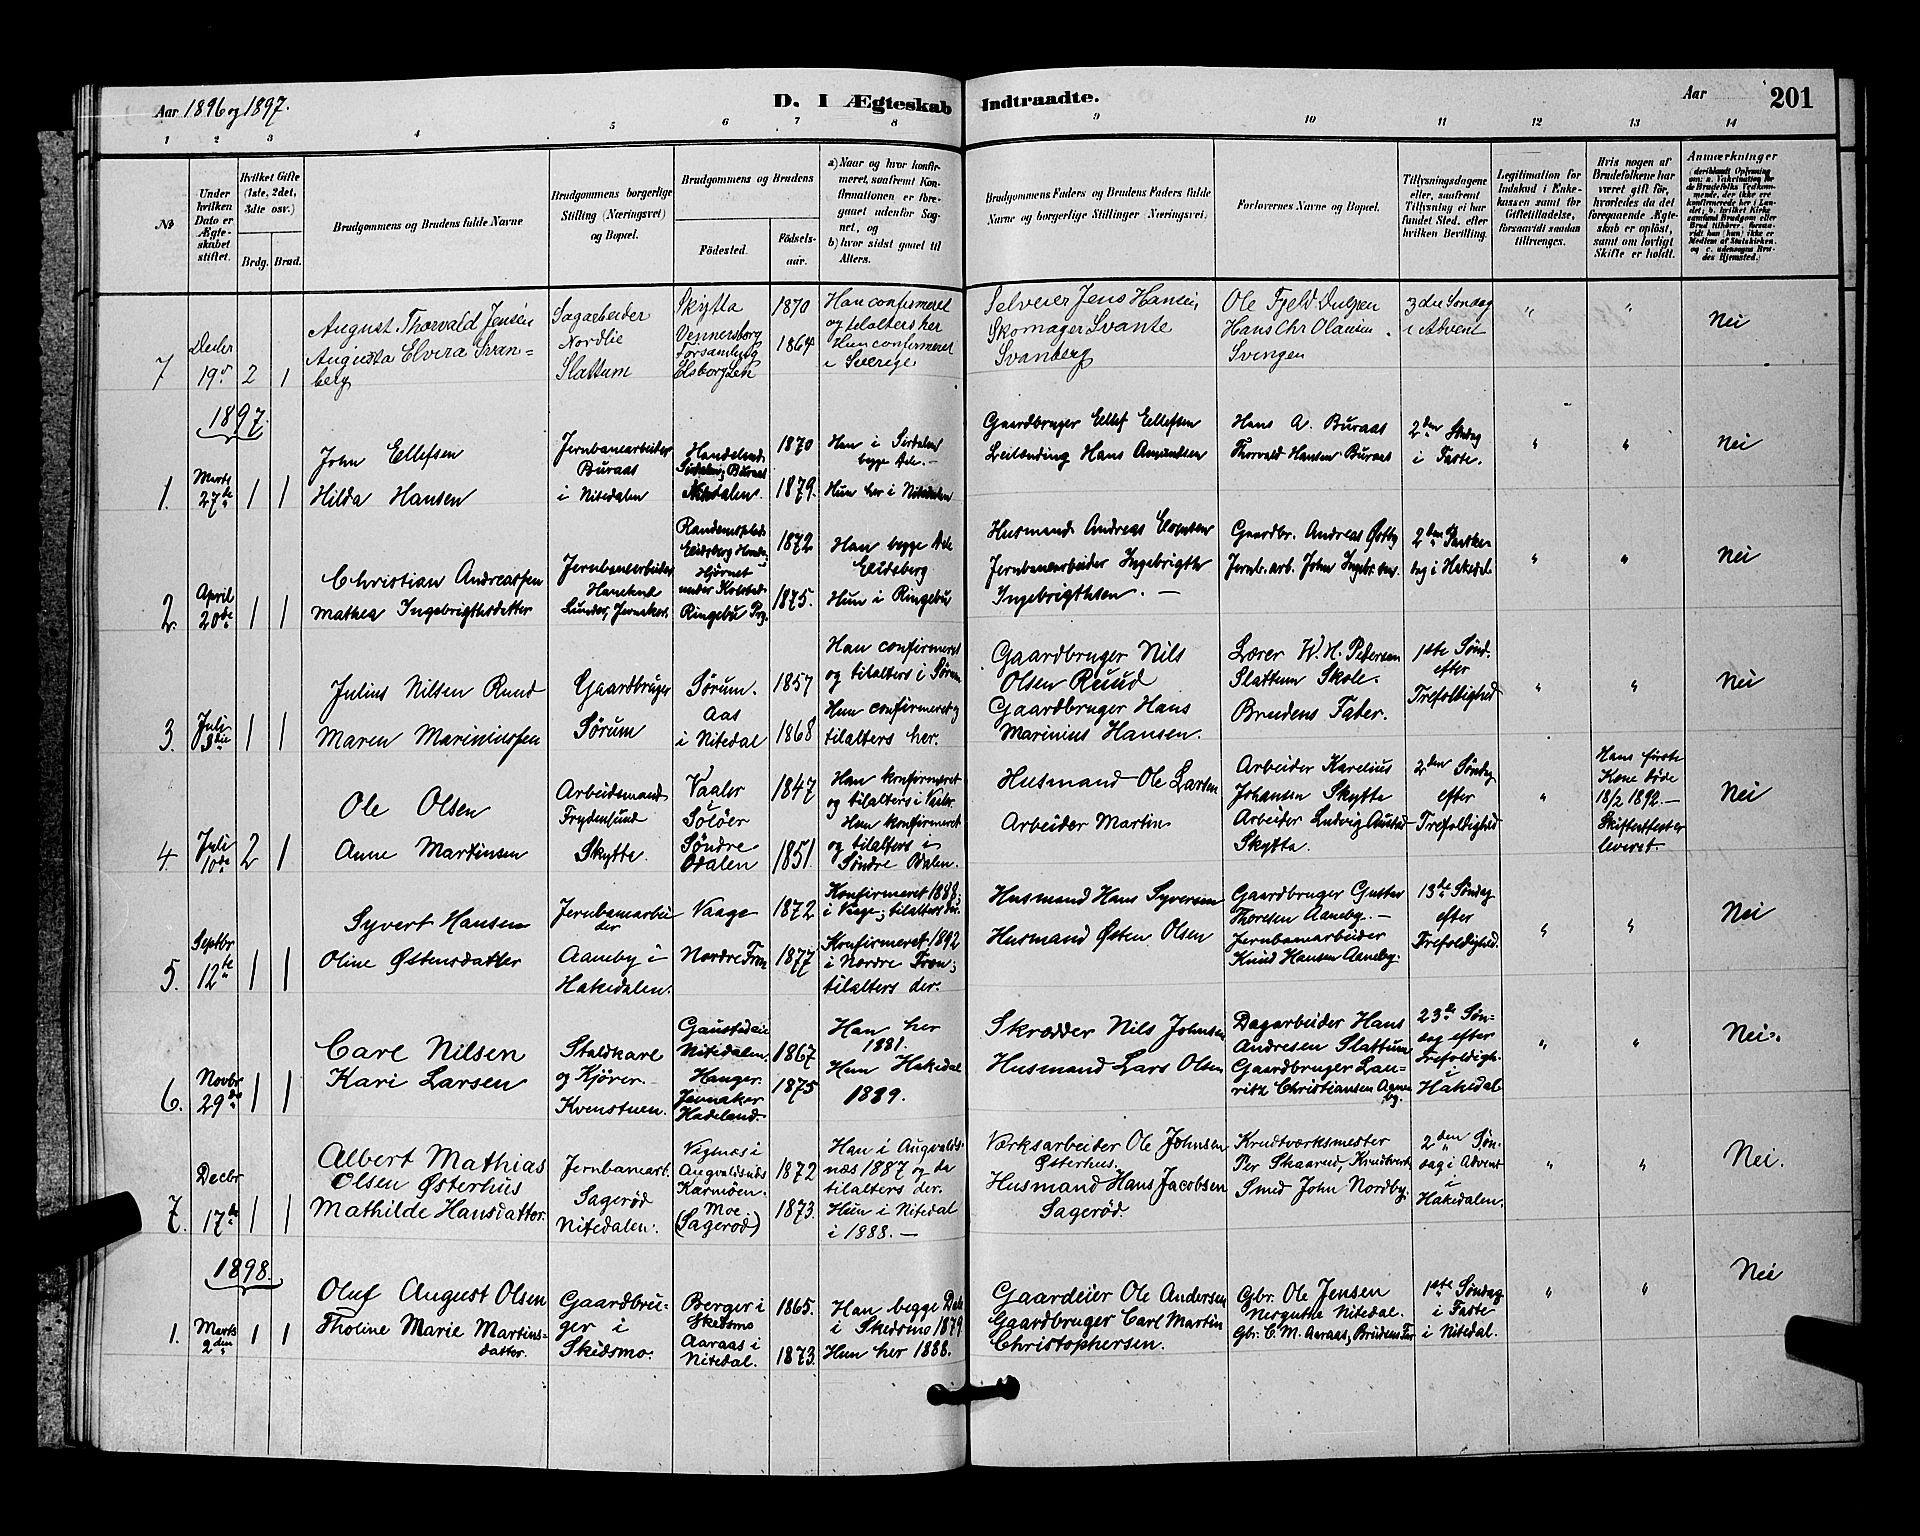 Aar 1896 og 1897.
D. I Ægteskab Indtraadte.
Aar
201
1 2 3 4 5 6 7 8 9 10 11 12 13 14
No
Under hvilken Dato er Ægteskabet stiftet.
Hvilket Gifte (1ste, 2det, 3die osv.)
Brdg. Brud.
Brudgommens og Brudens fulde Navne
Brudgommens borgerlige Stilling (Næringsvei) og Bopæl.
Brudgommens og Brudens
Födested.
Födselsaar.
a) Naar og hvor konfirmeret, saafremt Konfirmationen er foregaaet udenfor Sognet, og
b) hvor sidst gaaet til Alters.
Brudgommens Faders og Brudens Faders fulde Navne og borgerlige Stillinger (Næringsvei).
Forlovernes Navne og Bopæl.
Tillysningsdagene eller, saafremt Tillysning ei har fundet Sted, efter hvilken Bevilling.
Legitimation for Indskud i Enkekassen samt for Giftetilladelse, forsaavidt saadan tiltrænges.
Hvis nogen af Brudefolkene har været gift för, hvorledes da det foregaaende Ægteskab er oplöst, samt om lovligt Skifte er holdt.
Anmærkninger
7
Decbr
19de
2
1
August Thorvald Jensen
Augusta Elvera Svan=
berg
Sagarbeider
Nordlie
Slattum
Skytta
Vennersborg
Forsamling
Elsborglen
1870
1864
Han confirmeret
og tilalters her
Hun confirmeret
i Sverige
Selveier Jens Hansen
Skomager Svante
Svanberg
Ole Fjeld
Hans Chr Olausen
Svingen
3die Søndag
i Advent
"
"
Nei
1897.
1.
Marts
27de
1
1
John Ellefsen
Hilda Hansen
Jernbanearbeider
Buraas
i Nitedalen
Sirdalen; Buraas
Nitedalen.
1870
1879.
Han i Sirdalen
begge Dele. —
Hun her i Nitedalen
Gaardbruger Ellef Ellefsen
Leilænding Hans Amundsen
Hans A. Buraas
Thorvald Hansen Buraas
2den Søndag
i Faste.
"
"
Nei
2.
April
20de
1
1
Christian Andreassen
Mathea Ingebrigtsdatter
Jernbanearbeider
Lunder, Jevnaker.
Eidsberg
Hjørnet
under Kolstad
Ringebu Prg.
1872
1875.
Han begge Dele
Eidsberg
Hun i Ringebu
Husmand Andreas Evensen
Jernbanearbeider Ingebrigth
Ingebrigthsen. —
Gaardbr. Andreas Østby
Jernb.arb. John Ingebr.sen.
2den Paaske=
dag i Hakedal
"
"
Nei
3.
Juli
3die
1
1
Julius Nilsen Ruud
Maren Mariniussen
Gaardbruger
Sørum
Sørum.
Aas
i Nitedal
1857
1868
Han confirmeret
og tilalters i Sørum
Hun confirmeret og
tilalters her.
Gaardbruger Nils
Olsen Ruud
Gaardbruger Hans
Marinius Hansen.
Lærer W. H. Pedersen
Slattum Skole.
Brudens Fader.
1ste Sønd.
efter
Trefoldighed
"
"
Nei
4
Juli
10de
2
1
Ole Olsen
Anne Martinsen
Arbeidsmand
Frydenlund
Skytta.
Vaaler
Solöer
Søndre
Odalen
1847
1851.
Han konfirmeret
og tilalters i Vaaler
Hun konfirmeret
og tilalters i
Søndre Odalen.
Husmand Ole Larsen
Arbeider Martin
Arbeider Karelius
Johansen Skytta
Arbeider Ludvig
Skytta.
2den Søndag
efter
Trefoldighed
"
Hans første
Kone døde
18/2 1892. —
Skifteattest er
leveret.
Nei
5.
Septbr
12te
1
1
Syvert Hansen
Oline Østensdatter
Jernbanearbei
der
Aaneby i
Hakedalen.
Vaage
Nordre Fron
1872
1877
Konfirmeret 1888
i Vaage; tilalters der.
Konfirmeret 1892
i Nordre Fron;
tilalters der.
Husmand Hans Syversen
Husmand Østen Olsen
Gaardbruger Gustav
Thoresen Aaneby. —
Jernbanearbeider
Knud Hansen Aaneby.
13de Søndag
efter
Trefoldighed.
"
"
Nei
6.
Novbr
29de
1
1
Carl Nilsen
Kari Larsen
Staldkarl
og Kjører
Kvenstuen.
Gaustadeie
Nitedalen.
Hanger
Jevnaker
Hadeland
1867
1875
Han her
1881.
Hun Hakedal
1889.
Skrædder Nils Johnsen
Husmand Lars Olsen
Dagarbeider Hans
Andresen Slattum
Gaardbruger Lau=
ritz Christiansen Aane=
by.
23de Søn=
dag efter
Trefoldigh.
i
Hakedal
"
"
Nei.
7.
Decbr
17de
1
1
Albert Mathias
Olsen Østerhus
Mathilde Hansdatter.
Jernbanearb.
Sagerød
Nitedalen.
Vignæs i
Augvaldsnæs
Karmøen.
Moe
(Sagerød)
1872
1873.
Han i Augvalds=
næs 1887 og da
tilalters der.
Hun i Nitedal
i 1888. —
Værksarbeider Ole Johnsen
Østerhus.
Husmand Hans Jacobsen
Sagerød.
Krudtværksmester
Per Skaarud, Krudtverk
Smed John Nordby.
2den Søn=
dag i Advent
i
Hakedalen.
"
"
Nei.
1898.
1.
Marts
2den
1
1
Oluf August Olsen
Tholine Marie Martins=
datter.
Gaardbru=
ger i
Skedsmo.
Berger i
Skedsmo
Aaraas i
Nitedal.
1865.
1873.
Han begge Dele
i Skedsmo 1879
Hun her 1888.
Gaardeier Ole Andersen
Gaardbruger Carl Martin
Christophersen.
Gbr. Ole Jensen
Nitedal.
Gbr. C. M. Aaraas, Brudens Far
1ste Søndag
i Faste
i Nitedal.
"
"
Nei